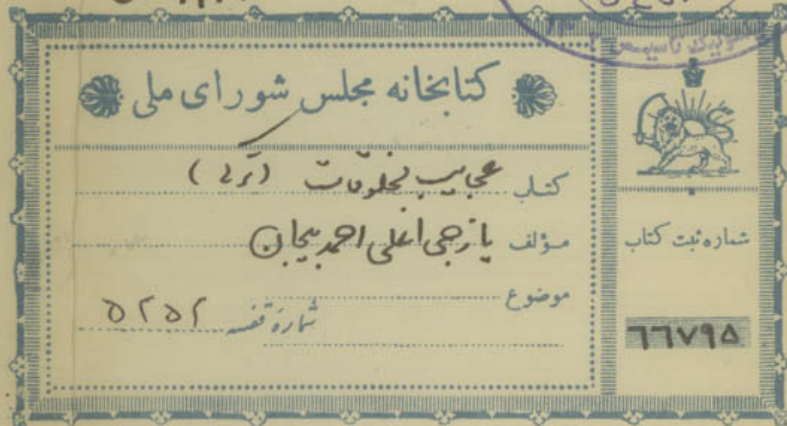 کتابخانه مجلس شورای ملی
کتاب عجایب المخلوقات (ترکی)
مؤلف یازجی اغلی احمد بیجان
موضوع
شمارهٔ قفسه ۵۲۵۲
شماره ثبت کتاب
۶۶۷۹۵
تأسیس